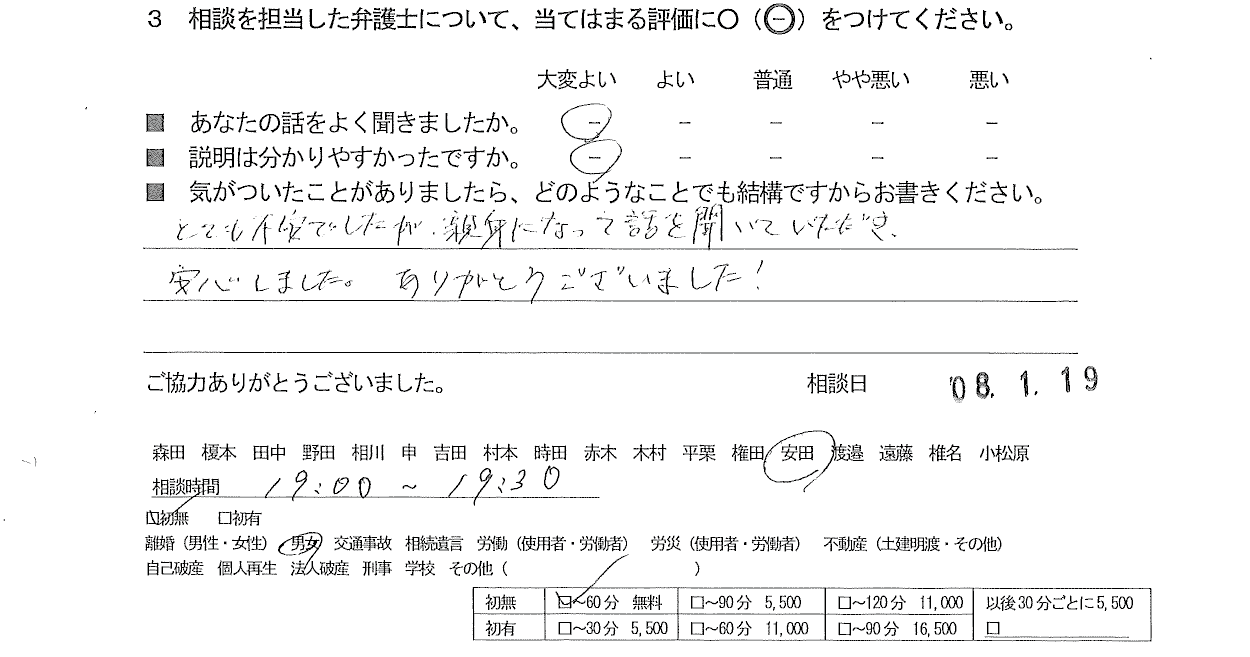 3 相談を担当した弁護士について、当てはまる評価に○（㊀）をつけてください。
大変よい よい 普通 やや悪い 悪い
■ あなたの話をよく聞きましたか。 － － － － －
■ 説明は分かりやすかったですか。 － － － － －
■ 気がついたことがありましたら、どのようなことでも結構ですからお書きください。
とても不安でしたが、親身になって話を聞いていただき、
安心しました。ありがとうございました!
ご協力ありがとうございました。 相談日 '08. 1. 19
森田 榎本 田中 野田 相川 申 吉田 村本 時田 赤木 木村 平栗 権田 安田 渡邉 遠藤 椎名 小松原
相談時間 19:00 ~ 19:30
□初無 □初有
離婚（男性・女性） 男女 交通事故 相続遺言 労働（使用者・労働者） 労災（使用者・労働者） 不動産（土建明渡・その他）
自己破産 個人再生 法人破産 刑事 学校 その他（ ）
初無 □～60分 無料 □～90分 5,500 □～120分 11,000 以後30分ごとに5,500
初有 □～30分 5,500 □～60分 11,000 □～90分 16,500 □